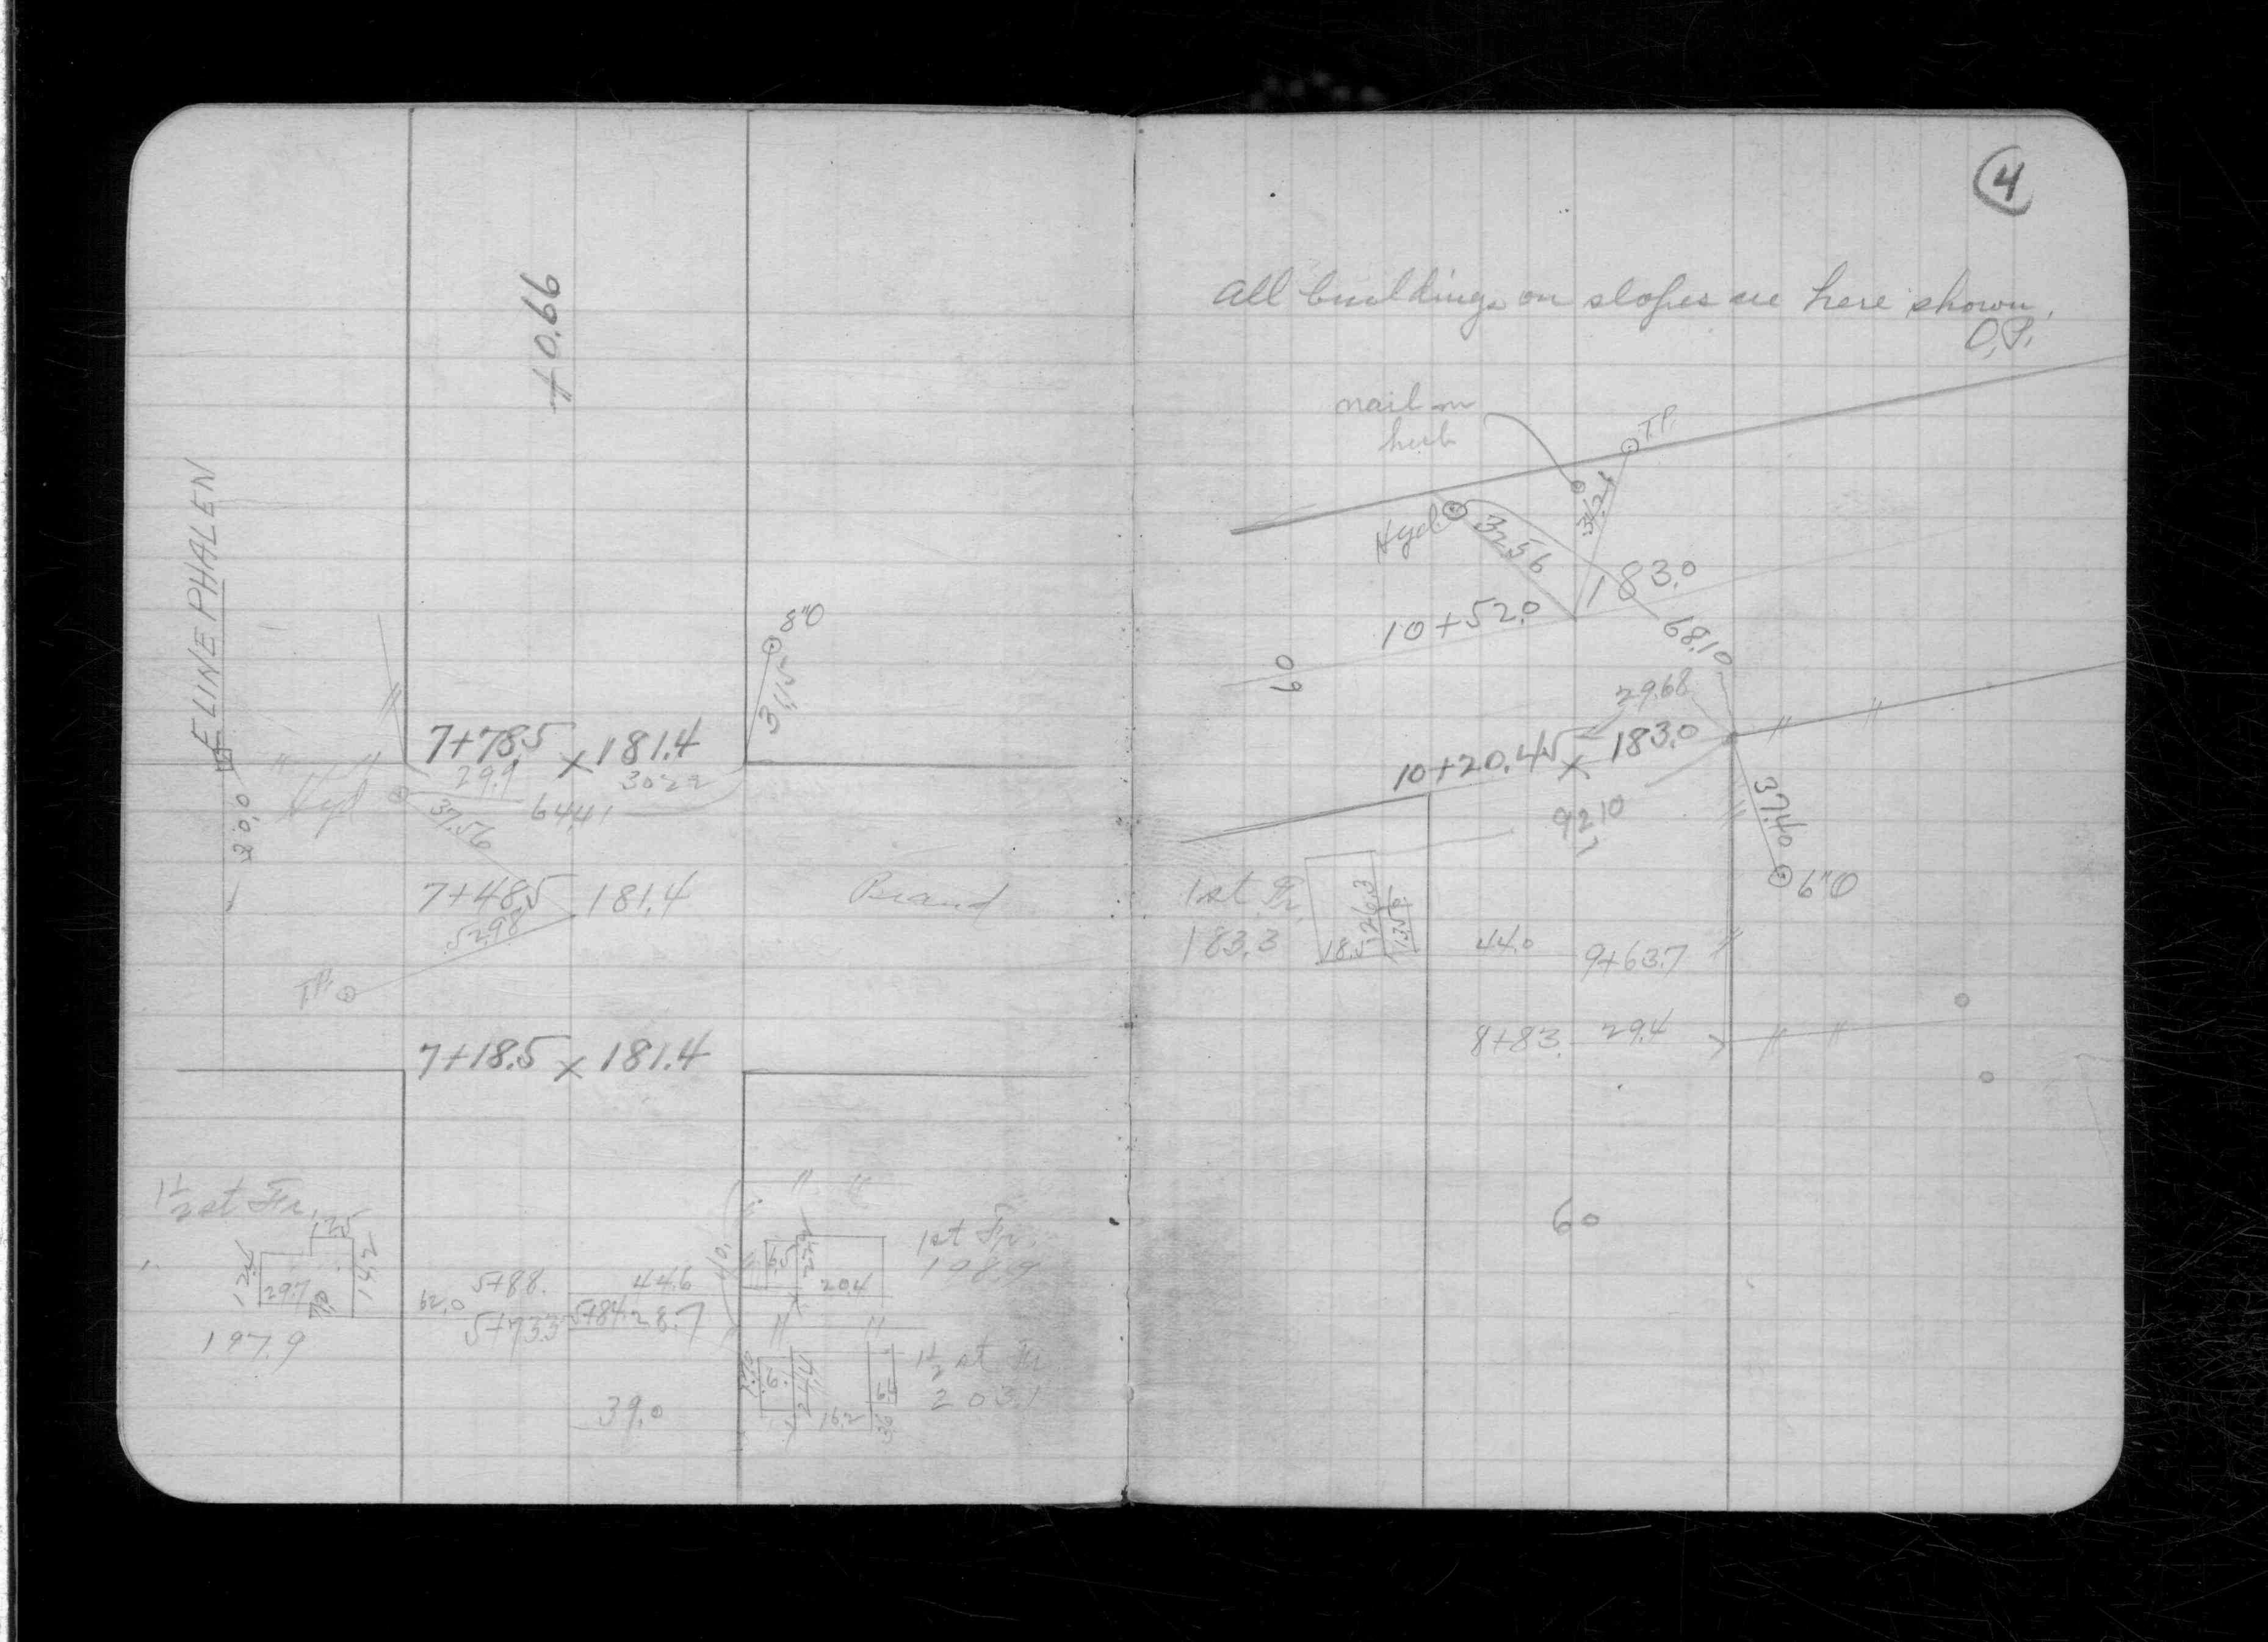 +0.66
E LINE PHALEN
8"O
31.15
7+78.5 x 181.4
29.9
30.22
Hyd
64.41
37.56
20.0
7+48.5 181.4
Brand
52.98
T.P.
7+18.5 x 181.4
1½ st Fr.
12.5
12.4
14.2
29.7
7.0
197.9
62.0
5+88.
44.6
5+73.3
5+84.
28.7
39.0
40.
1st Fr.
108.9
6.5
22.2
20.4
1½ st Fr
203.1
6.
24.4
16.2
4
All buildings on slopes are here shown.
O.P.
nail in
hub
T.P.
Hyd
32.56
183.0
10+52.0
68.10
60
29.68
10+20.45 x 183.0
92.10
37.40
6"O
1st Fr.
183.3
18.5
26.3
13.5
44.0
9+63.7
8+83.
29.4
60